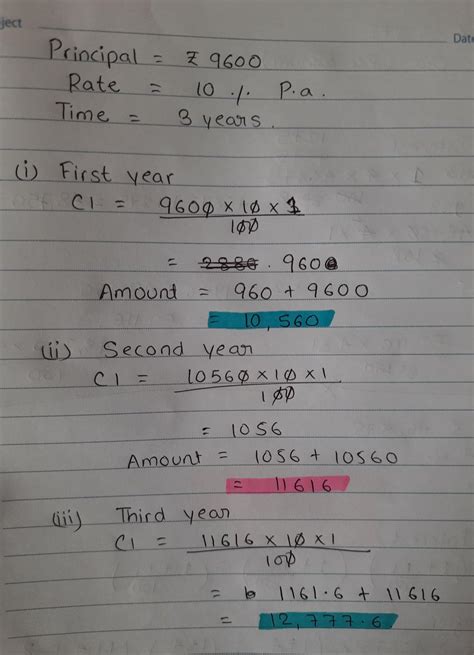 ject
Date
Principal = ₹ 9600
Rate = 10 % P.a.
Time = 3 years.
(i) First year
CI = 9600 × 10 × 1
100
= 2880 . 960
Amount = 960 + 9600
= 10,560
(ii) Second year
CI = 10560 × 10 × 1
100
= 1056
Amount = 1056 + 10560
= 11616
(iii) Third year
CI = 11616 × 10 × 1
100
= 1161.6 + 11616
= 12,777.6